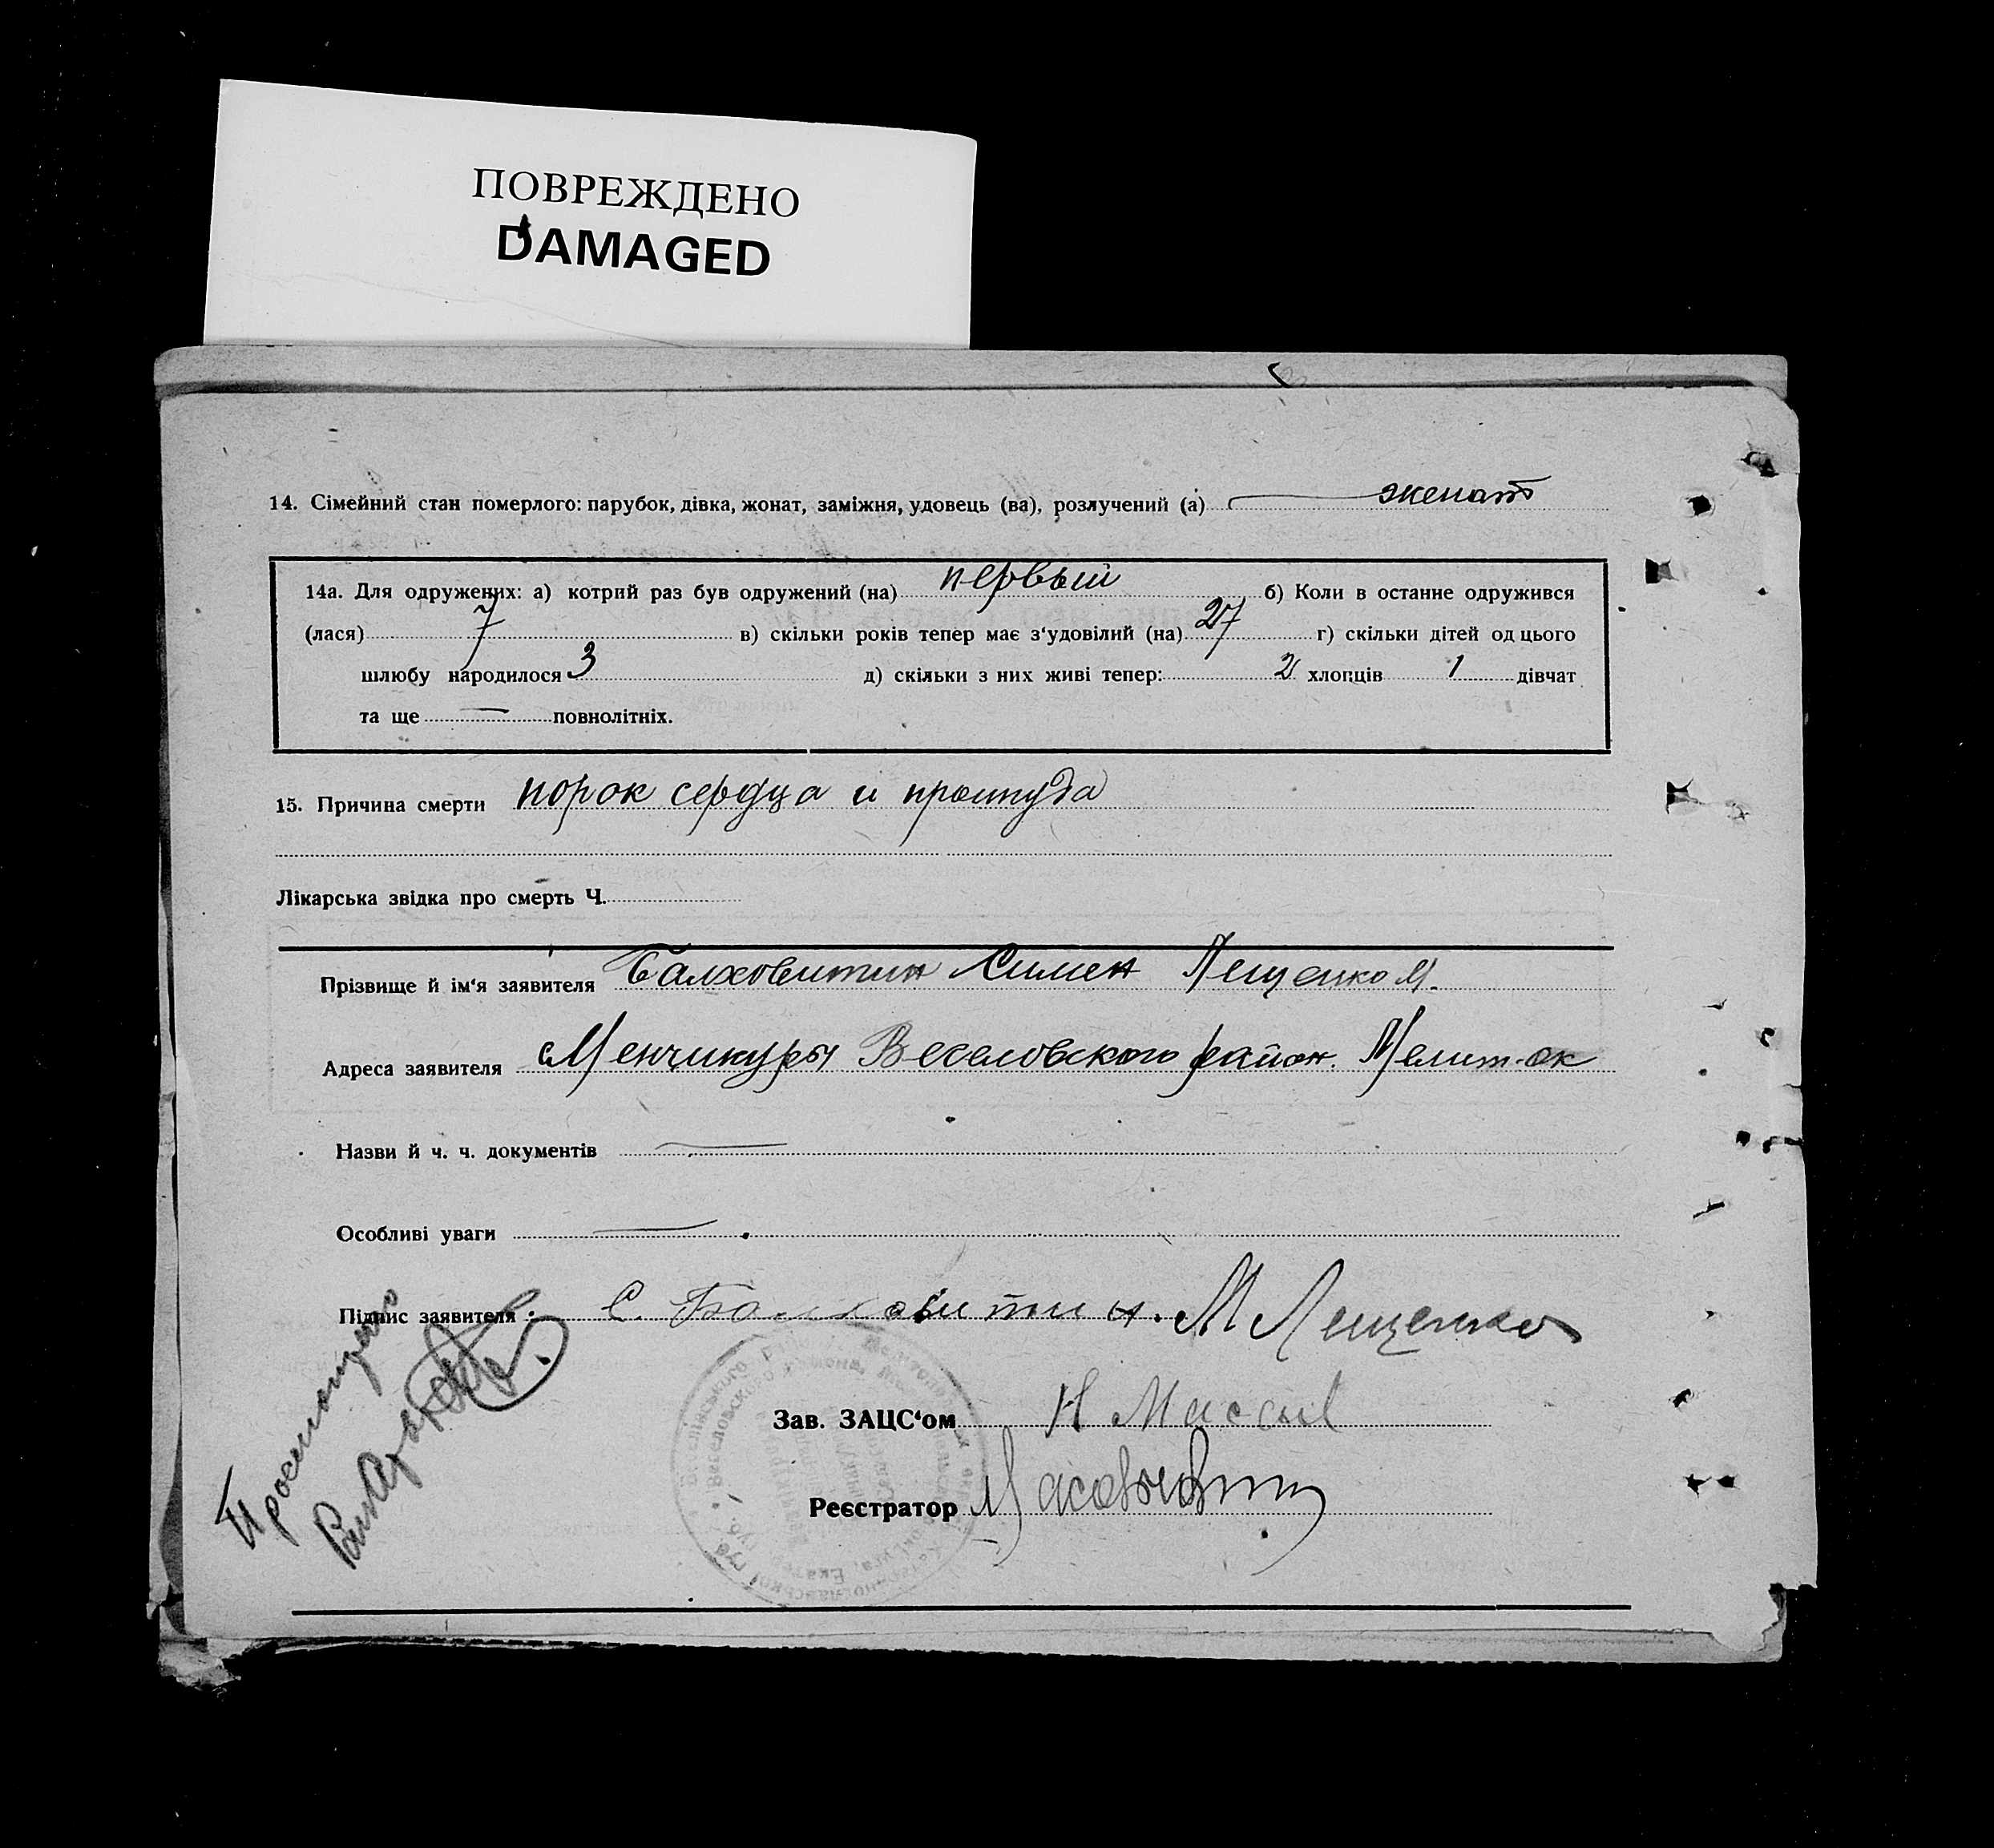 ПОВРЕЖДЕНО
DAMAGED
14. Сімейний стан померлого: парубок, дівка, жонат, заміжня, удовець (ва), розлучений (а) женат
14а. Для одружених: а) котрий раз був одружений (на) первый б) Коли в останне одружився
(лася) 7 в) скільки років тепер має з‘удовілий (на) 27 г) скільки дітей од цього
шлюбу народилося 3 д) скільки з них живі тепер: 2 хлопців 1 дівчат
та ще — повнолітніх.
15. Причина смерти порок сердца и простуда
Лікарська звідка про смерть Ч.
Прізвище й ім‘я заявителя Балховитин Симен Лещенко М.
Адреса заявителя с Менчикуры Веселовского район. Мелит-ок
Назви й ч. ч. документів —
Особливі уваги —
Підпис заявителя: С. Балховитин. М Лещенко
Зав. ЗАЦС‘ом Н
Реєстратор